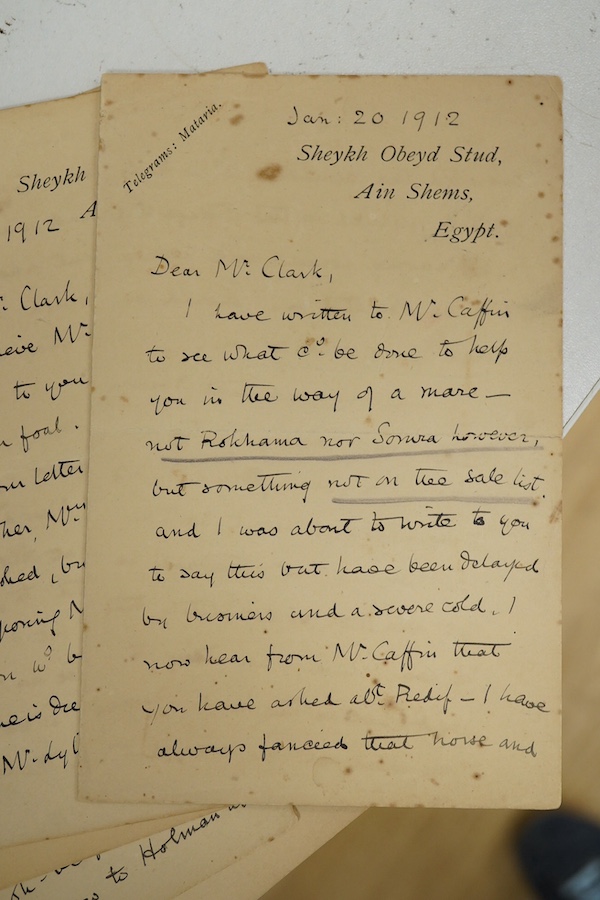 Telegrams: Mataria.
Jan: 20 1912
Sheykh Obeyd Stud,
Ain Shems,
Egypt.
Dear Mr. Clark,
I have written to Mr. Caffin
to see what cd. be done to help
you in the way of a mare —
not Rokhama nor Somra however,
but something not on the sale list.
and I was about to write to you
to say this but have been delayed
by business and a severe cold. I
now hear from Mr. Caffin that
you have asked abt. Redif — I have
always fancied that horse and
Sheykh
A
1912
Clark,
Mr.
to you
foal.
letter
her, Mrs
bu
is
Mr. Lyl
to Holman